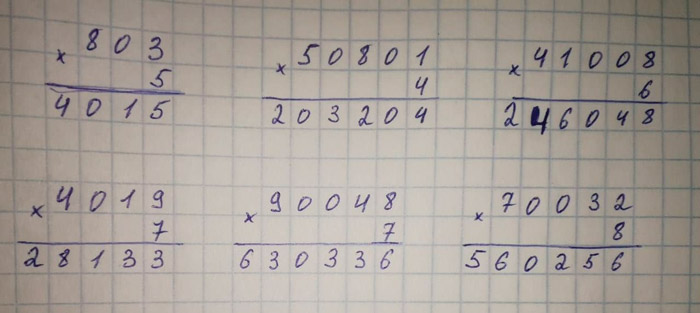 × 803
5
4015
× 50801
4
203204
× 41008
6
246048
× 4019
7
28133
× 90048
7
630336
× 70032
8
560256